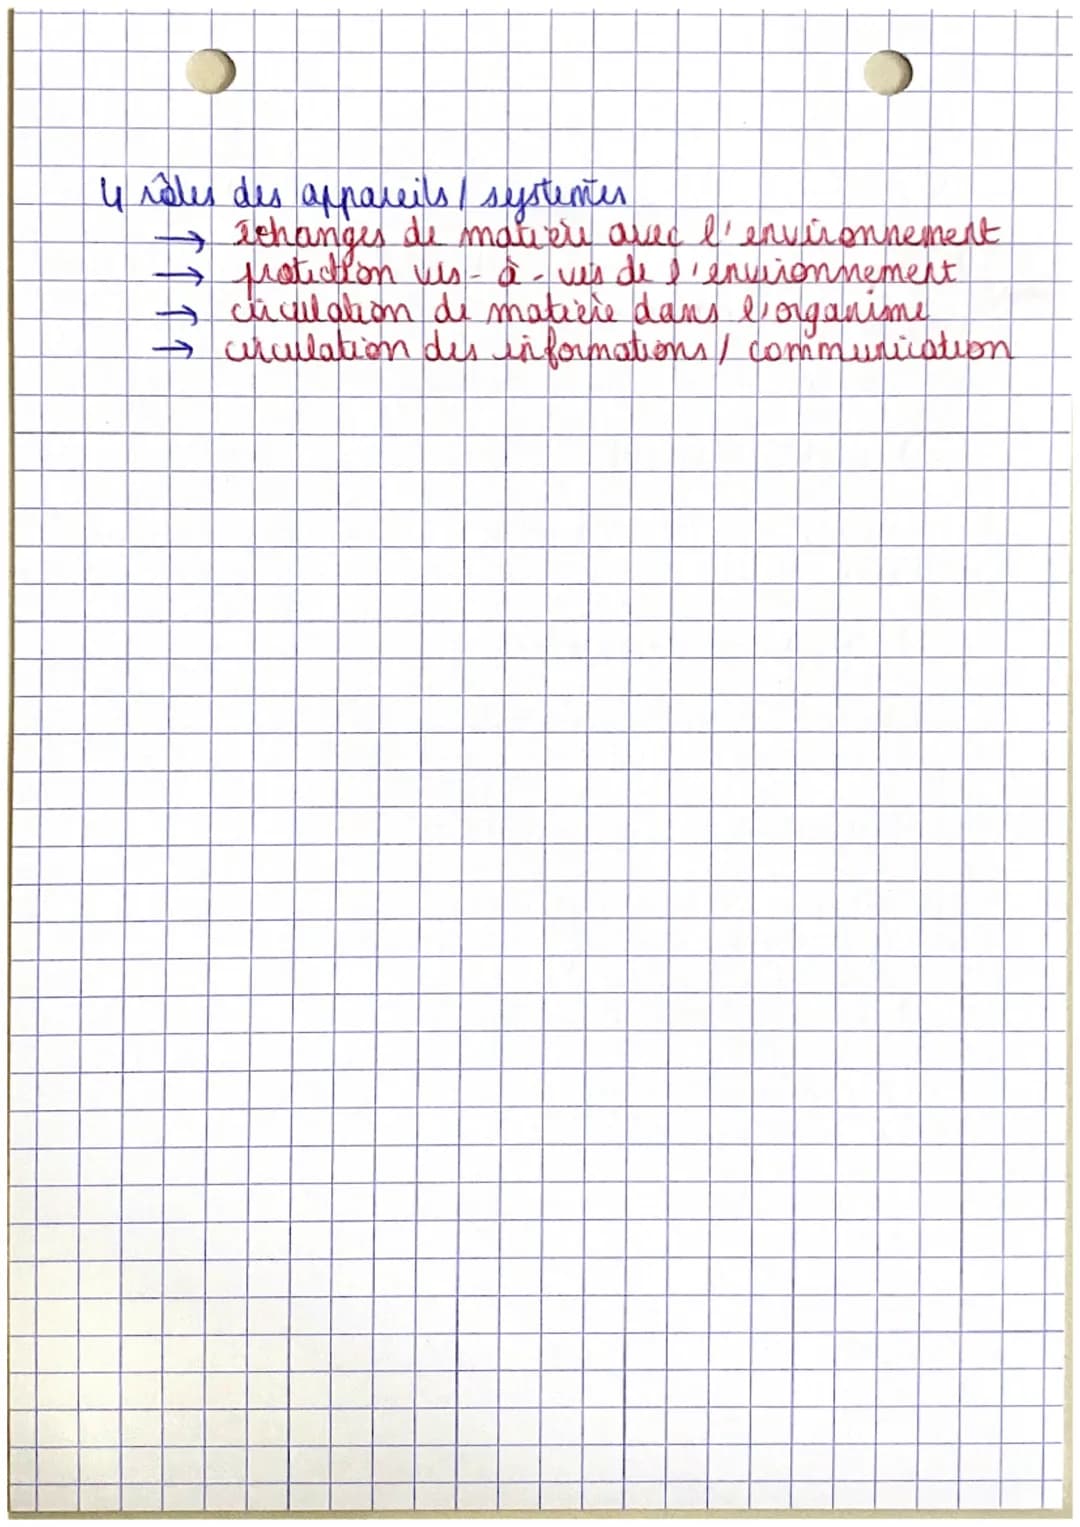 4 rôles des appareils / systèmes
→ échanges de matière avec l'environnement
→ protection vis-à-vis de l'environnement
→ circulation de matière dans l'organisme
→ circulation des informations / communication